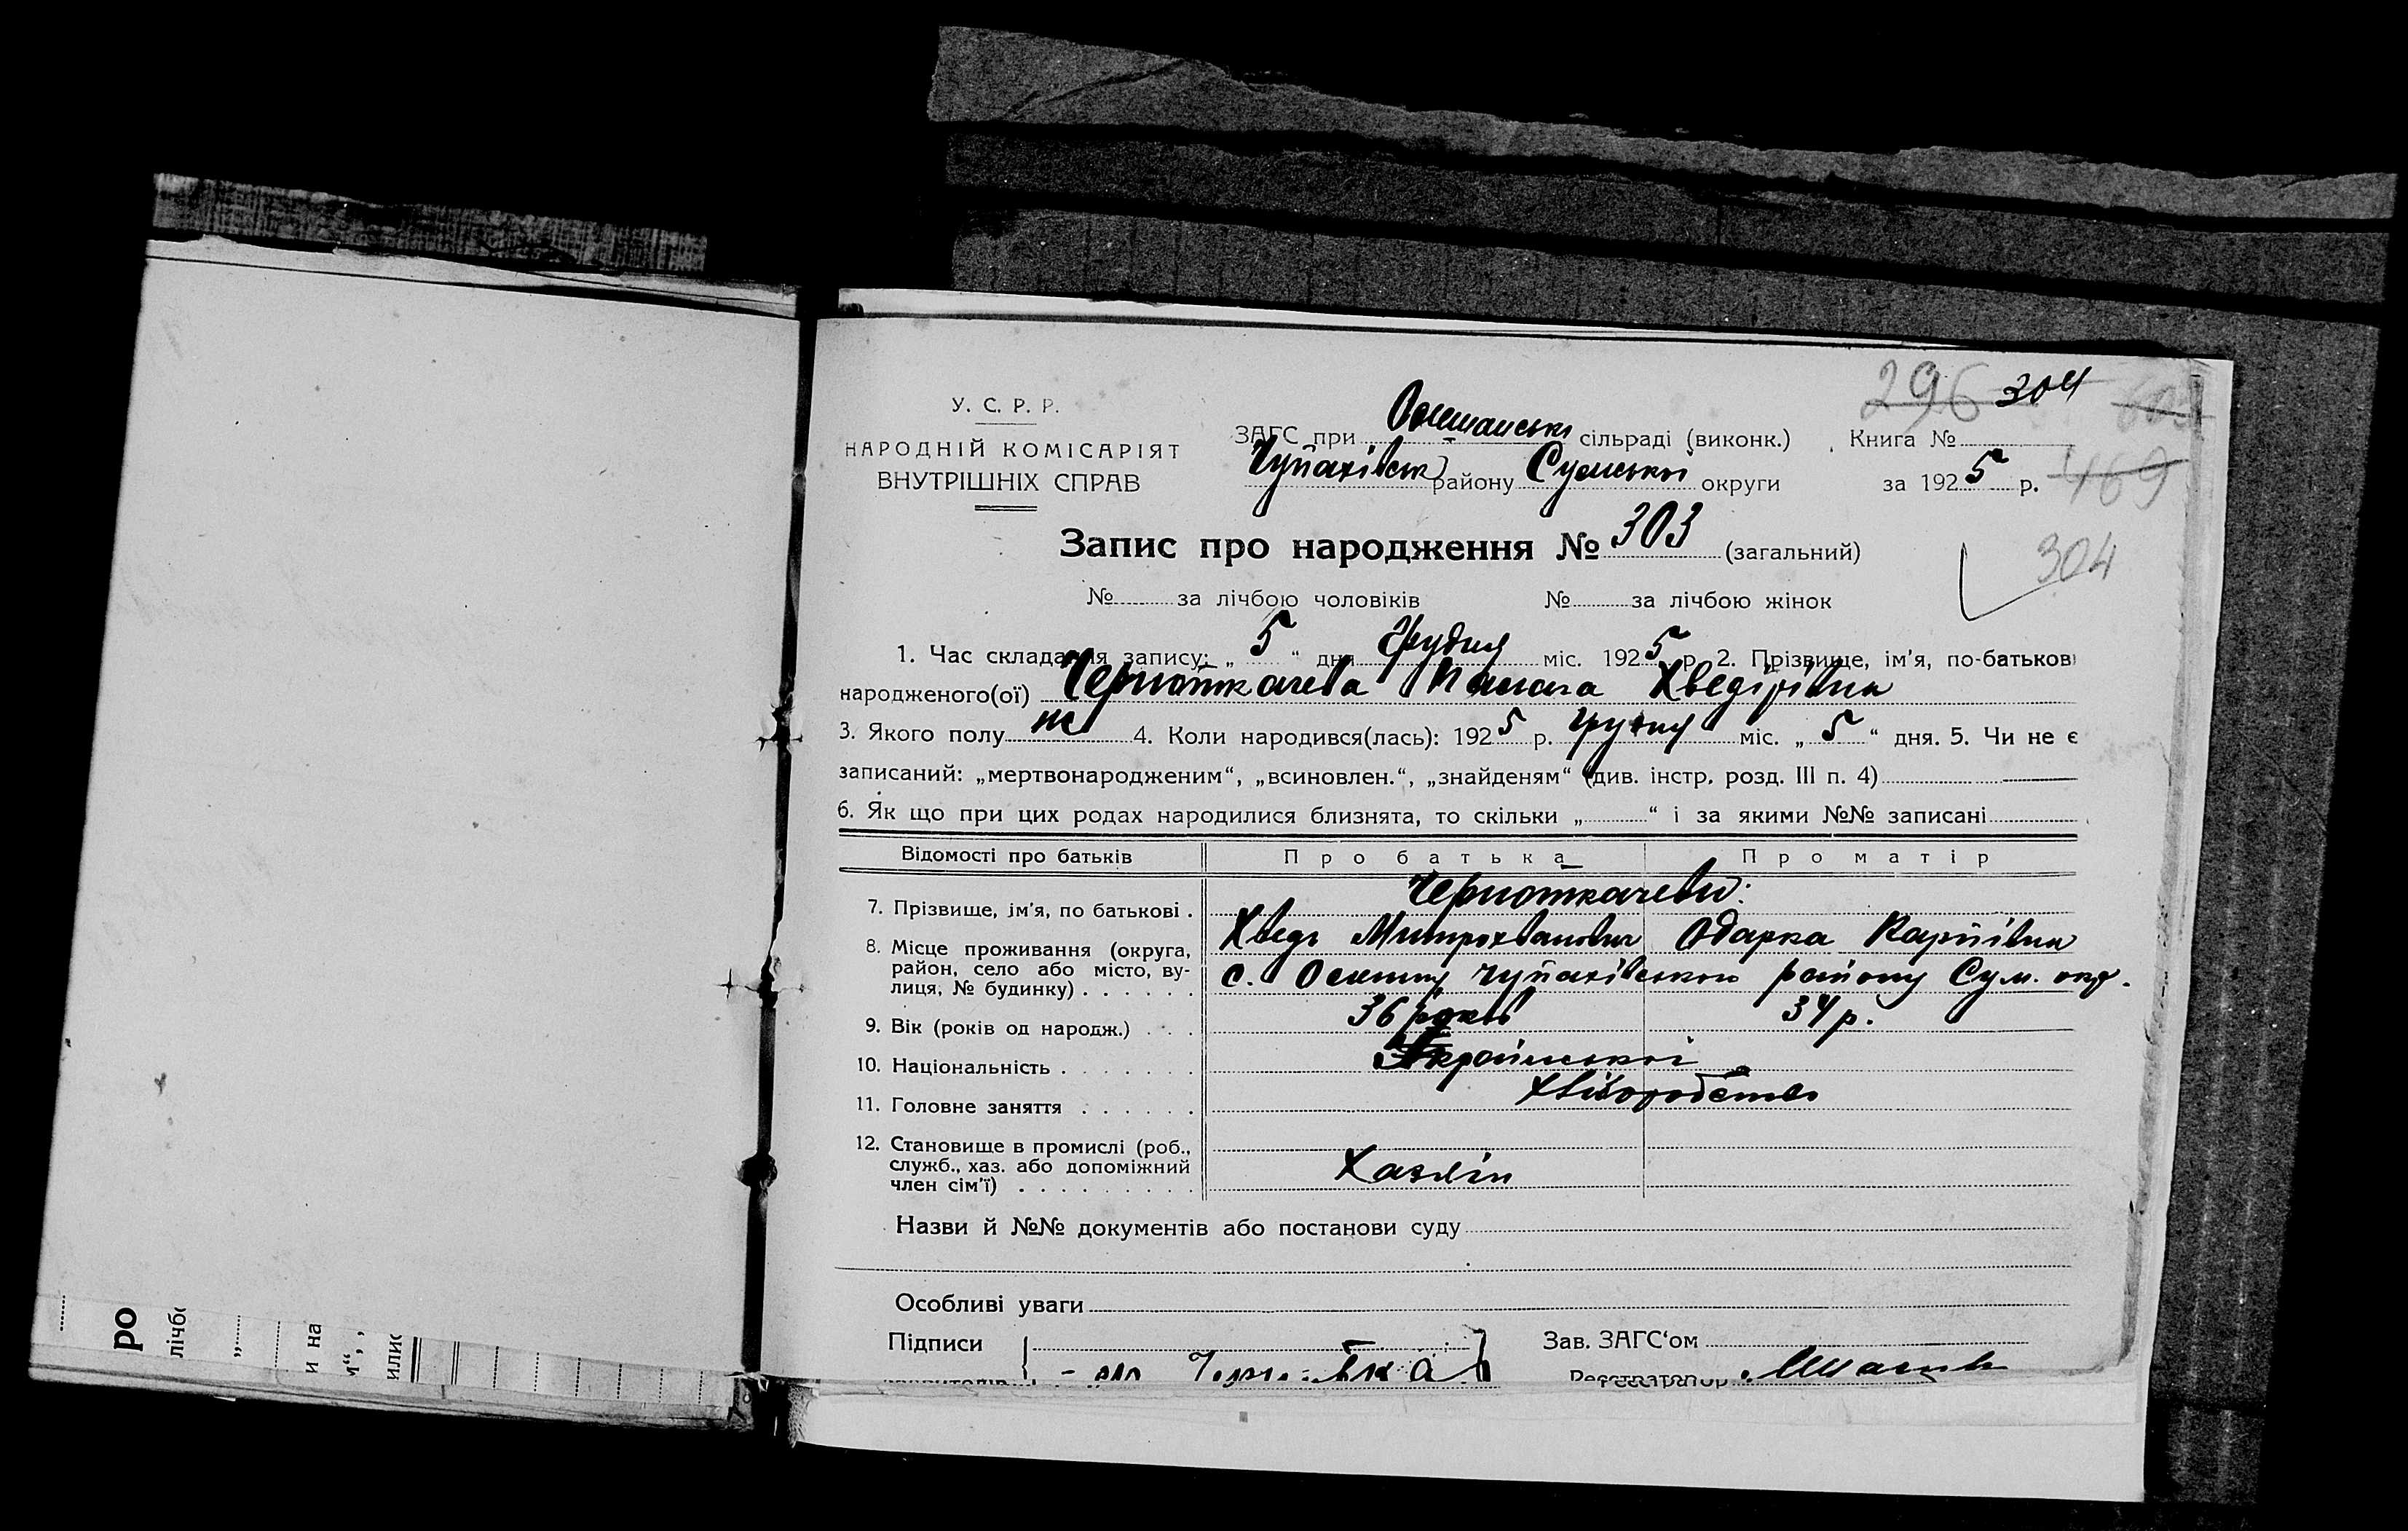 296 304 603
У. С. Р. Р.
НАРОДНІЙ КОМІСАРІЯТ
ВНУТРІШНІХ СПРАВ
ЗАГС при сільраді (виконк.) Книга №
Чупахівськ району Сумської округи за 1925 р. 469
Запис про народження № 303 (загальний)
304
№ за лічбою чоловіків № за лічбою жінок
1. Час складання запису: „ 5 “ дня Грудня міс. 1925 р. 2. Прізвище, ім’я, по-батькові
народженого(ої) Черноткачева Хведірівна
3. Якого полу ж 4. Коли народився(лась): 1925 р. грудня міс. „ 5 “ дня. 5. Чи не є
записаний: „мертвонародженим“, „всиновлен.“, „знайденям“ (див. інстр. розд. III п. 4)
6. Як що при цих родах народилися близнята, то скільки „ “ і за якими №№ записані
Відомості про батьків Про батька Про матір
7. Прізвище, ім’я, по батькові . Черноткачеви:
Хведь Митрохванович Одарка Карпівна
8. Місце проживання (округа,
район, село або місто, ву-
лиця, № будинку) . . . . . . с. Чупахівського району Сум. окр.
9. Вік (років од народж.) . . . 36 років 34 р.
10. Національність . . . . . . . Української
11. Головне заняття . . . . . . Хліборобство
12. Становище в промислі (роб.,
служб., хаз. або допоміжний
член сім’ї) . . . . . . . . . Хазяїн
Назви й №№ документів або постанови суду
Особливі уваги
Підписи Зав. ЗАГС‘ом
Регистратор
ро
лічбо
и на